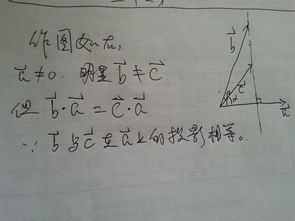 作图如右,
a⃗≠0. 明显 b⃗≠c⃗
但 b⃗·a⃗=c⃗·a⃗
∵ b⃗与c⃗在a⃗上的投影相等。
b⃗
c⃗
a⃗